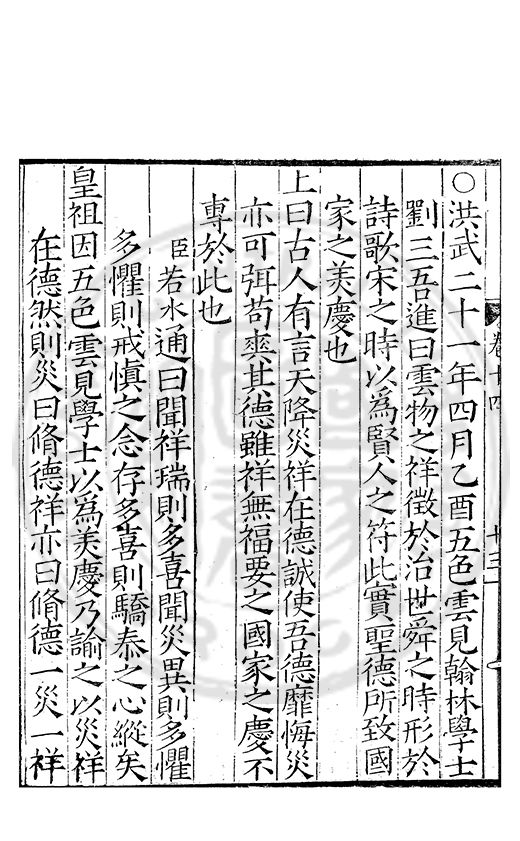 ○洪武二十一年四月乙酉五色雲見翰林學士
劉三吾進曰雲物之祥徵於治世舜之時形於
詩歌宋之時以為賢人之符此實聖德所致國
家之美慶也
上曰古人有言天降災祥在德誠使吾德靡悔災
亦可弭苟爽其德雖祥無福要之國家之慶不
專於此也
臣若水通曰聞祥瑞則多喜聞災異則多懼
多懼則戒慎之念存多喜則驕泰之心縱矣
皇祖因五色雲見學士以為美慶乃諭之以災祥
在德然則災曰脩德祥亦曰脩德一災一祥
卷十四